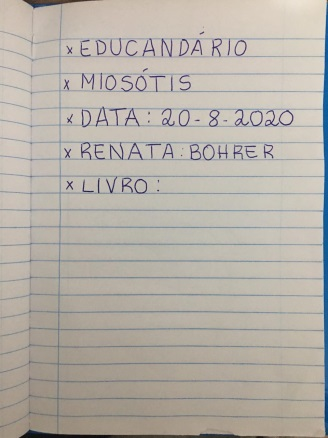 x EDUCANDÁRIO
x MIOSÓTIS
x DATA: 20-8-2020
x RENATA: BOHRER
x LIVRO: